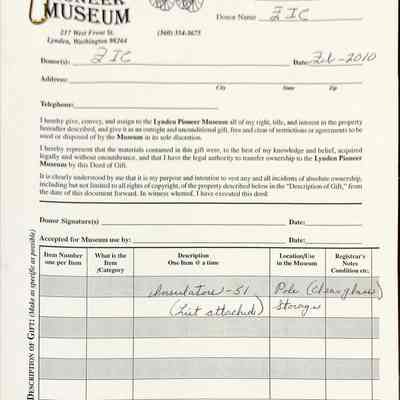 PIONEER
MUSEUM
217 West Front St.
Lynden, Washington 98264
(360) 354-3675
Donor Name FIC
Donor(s): FIC Date: Feb-2010
Address:
City State Zip
Telephone:
I hereby give, convey, and assign to the Lynden Pioneer Museum all of my right, title, and interest in the property
hereafter described, and give it as an outright and unconditional gift, free and clear of restrictions or agreements to be
used or disposed of by the Museum in its sole discretion.
I hereby represent that the materials contained in this gift were, to the best of my knowledge and belief, acquired
legally and without encumbrance, and that I have the legal authority to transfer ownership to the Lynden Pioneer
Museum by this Deed of Gift.
It is clearly understood by use that it is my purpose and intention to vest any and all incidents of absolute ownership,
including but not limited to all rights of copyright, of the property described below in the "Description of Gift," from
the date of this document forward. In witness whereof, I have executed this deed.
Donor Signature(s) Date:
Accepted for Museum use by: Date:
DESCRIPTION OF GIFT: (Make as specific as possible)
Item Number
one per Item
What is the
Item
/Category
Description
One Item @ a time
Location/Use
in the Museum
Registrar's
Notes
Condition etc.
Insulators - 51
(List attached)
Pole (Clear glass)
Storage